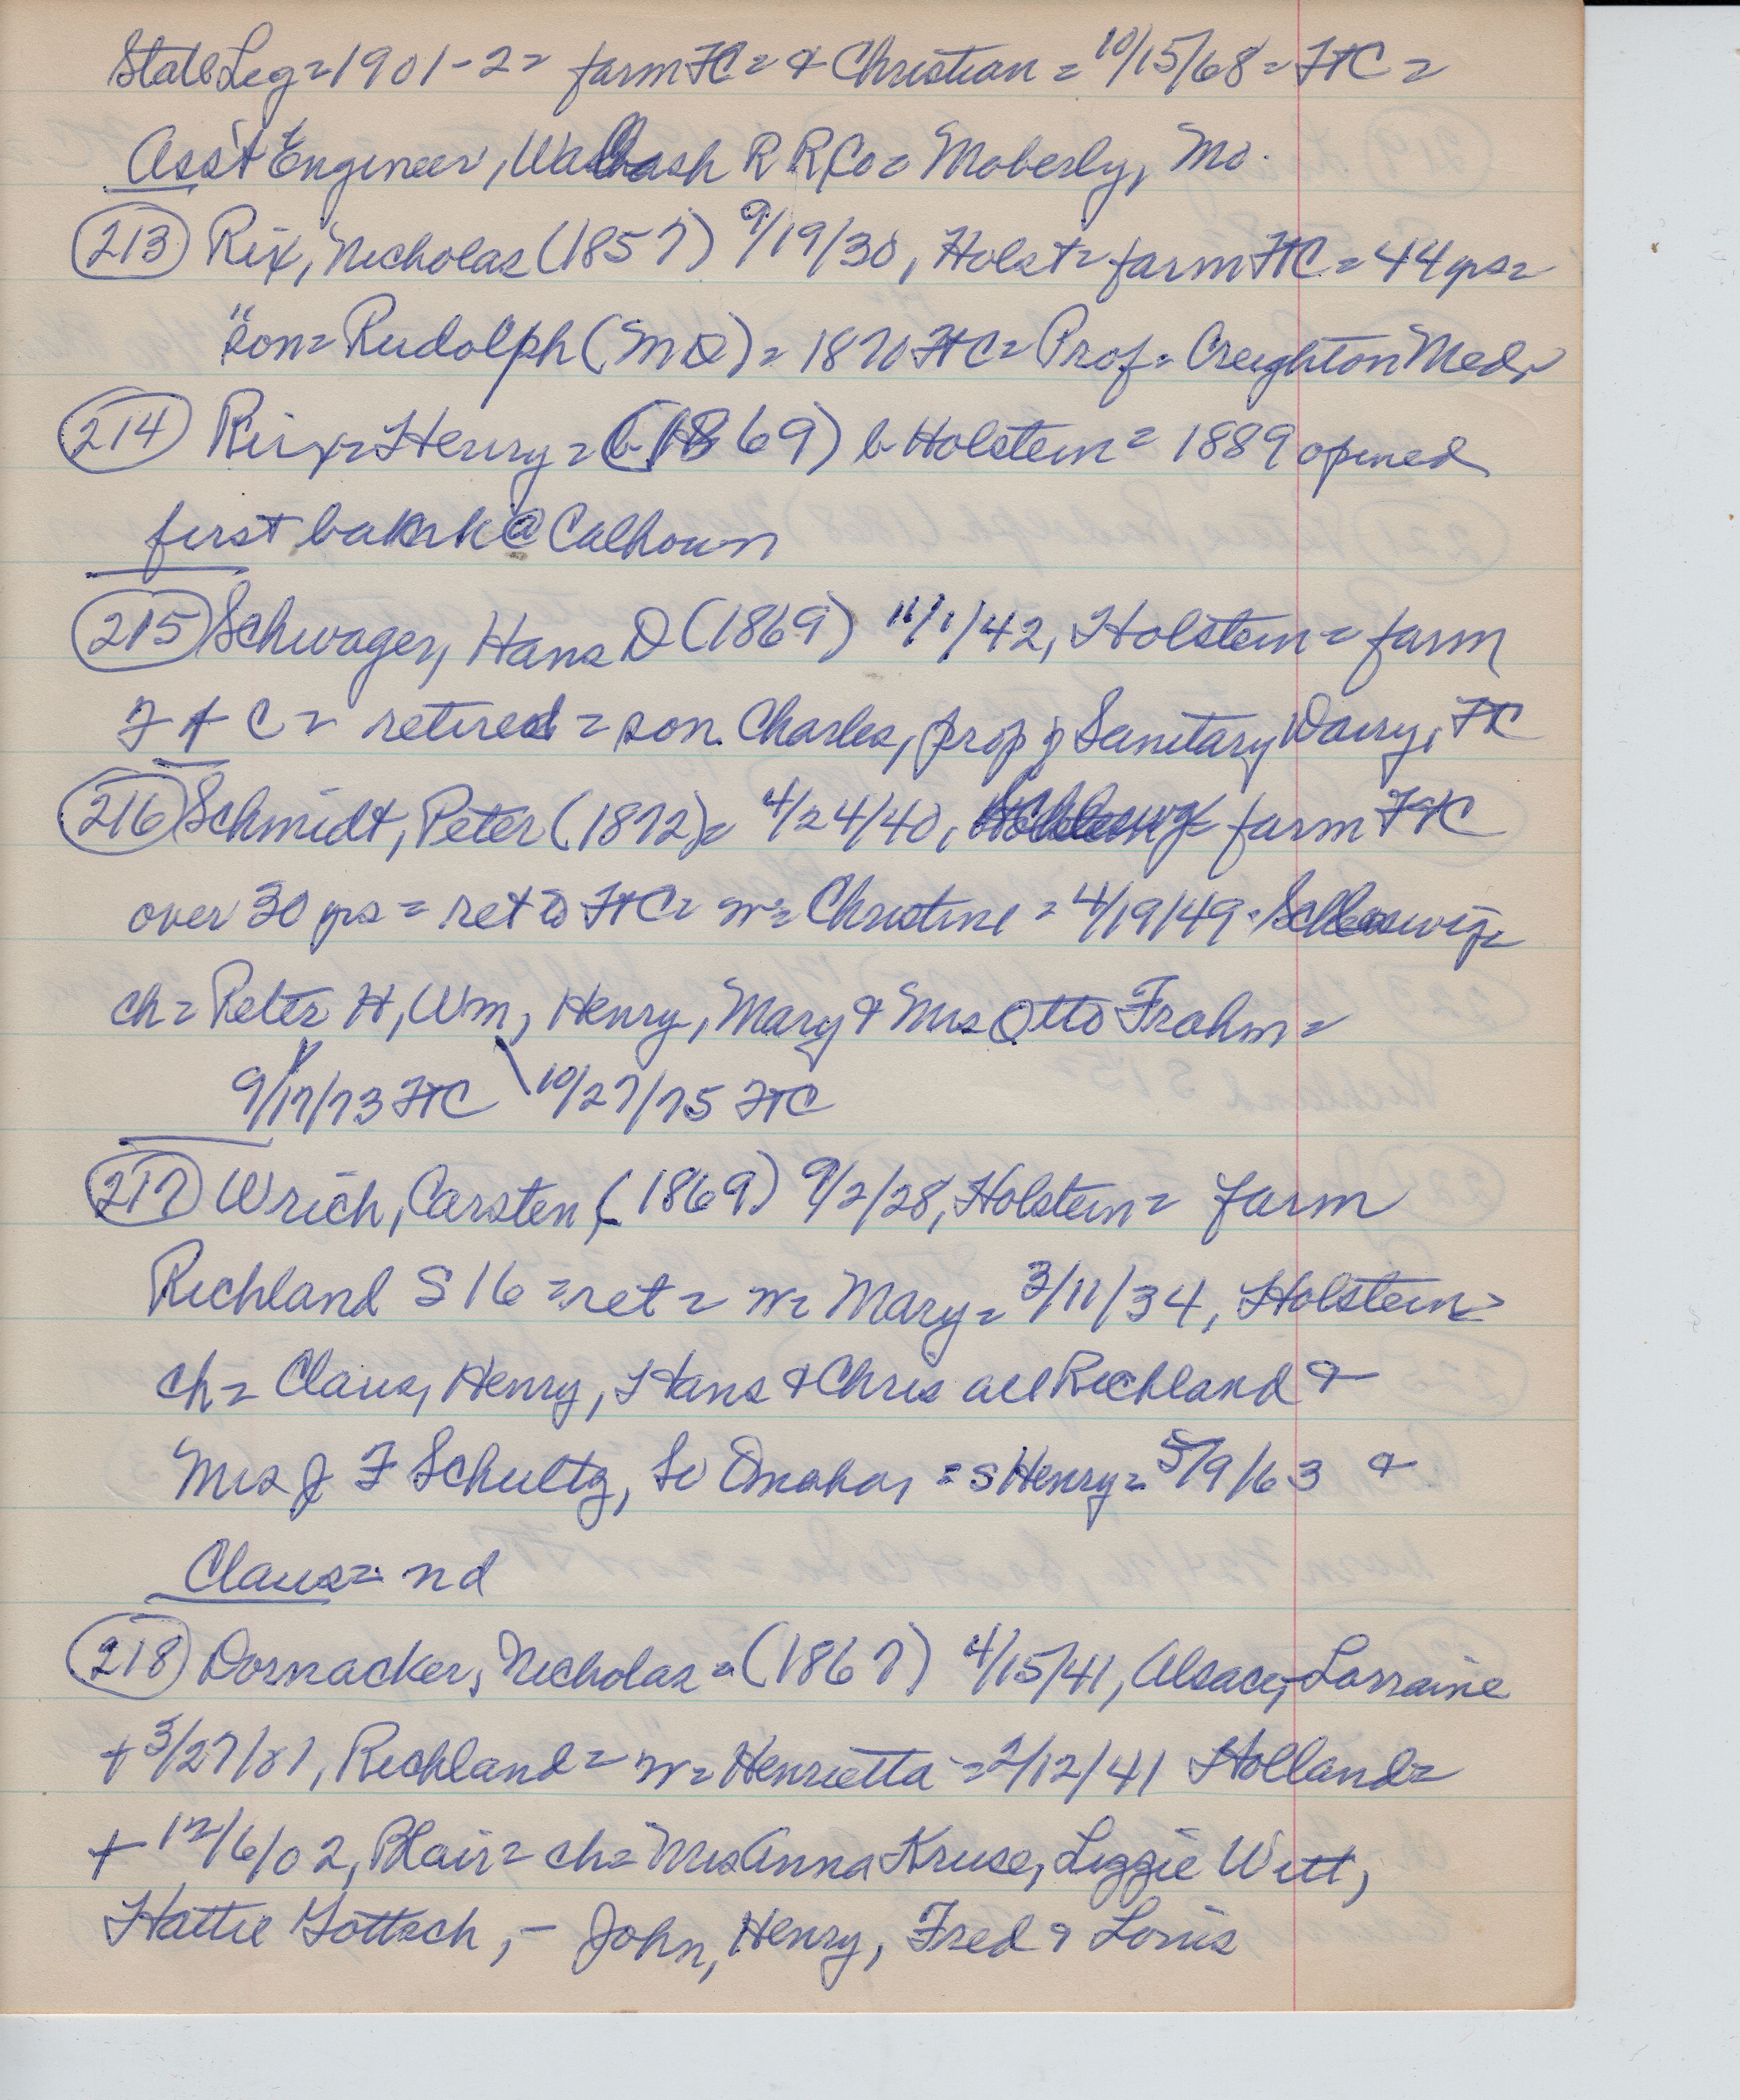 State Leg = 1901-2 = farm FtC = & Christian = 10/15/68 = FtC =
Ass't Engineer, Wabash R R Co = Moberly, Mo.
(213) Rix, Nicholas (1857) 9/19/30, Holst = farm FtC = 44 yrs =
"son = Rudolph (MD) = 1870 FtC = Prof = Creighton Med.
(214) Rix = Henry = (1869) b Holstein = 1889 opened
first bank @ Calhoun
(215) Schwager, Hans D (1869) 11/1/42, Holstein = farm
F t C = retired = son Charles, prop of Sanitary Dairy, FC
(216) Schmidt, Peter (1872) = 4/24/40, Schleswig = farm FtC
over 30 yrs = ret to FtC = w = Christine = 4/19/49 = Schleswig =
ch = Peter H, Wm, Henry, Mary & Mrs Otto Frahm =
9/17/73 FtC \ 10/27/75 FtC
(217) Wrich, Carsten, (1869) 9/2/28, Holstein = farm
Richland S 16 = ret = w = Mary = 3/11/34, Holstein =
ch = Claus, Henry, Hans & Chris all Richland &
Mrs J F Schultz, So Omaha, = s Henry = 5/9/63 &
Claus = nd
(218) Dornacker, Nicholas = (1867) 4/15/41, Alsace-Lorraine
+ 3/27/81, Richland = w = Henrietta = 2/12/41 Holland =
+ 12/6/02, Blair = ch = Mrs Anna Kruse, Lizzie Witt,
Hattie Gottsch, - John, Henry, Fred & Louis